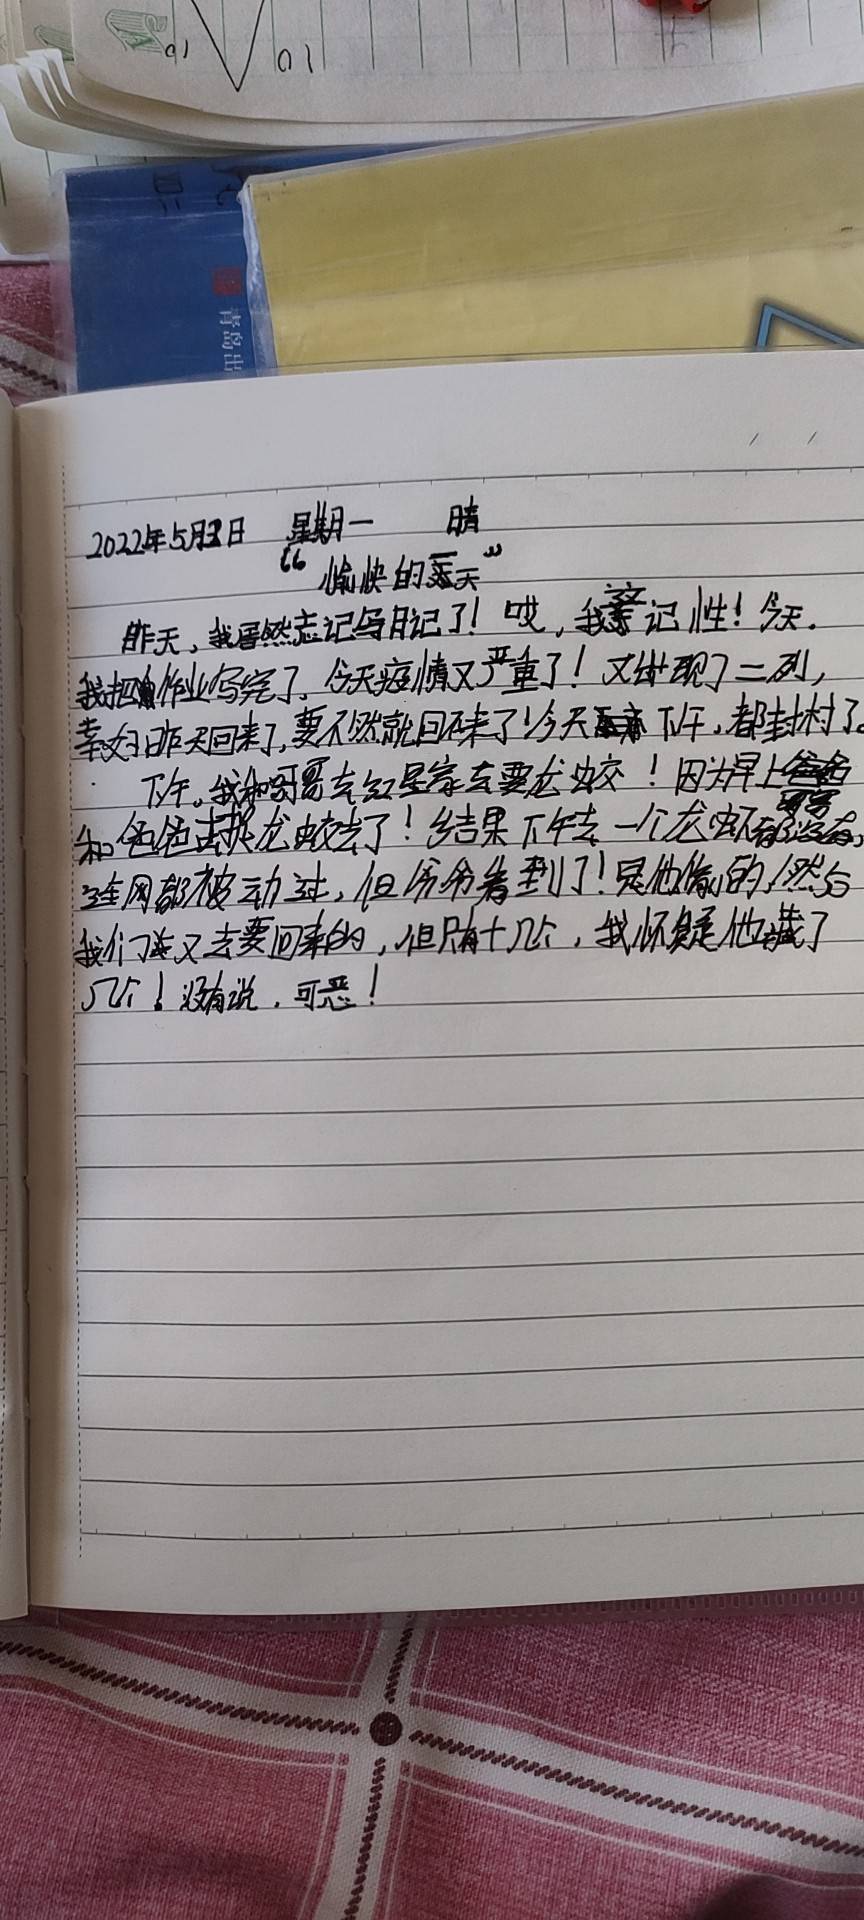 01 01
青岛出
2022年5月2日 星期一 晴
“愉快的一天”
昨天，我居然忘记写日记了！哎，我这记性！今天．
我把作业写完了．今天疫情又严重了！又出现了二列，
幸好昨天回来了，要不然就回不来了！今天下午，都封村了。
下午。我和哥哥去红星家去要龙虾！因为早上
和爸爸去抓龙虾去了！结果下午去一个龙虾都没有，
连网都被动过，但爷爷看到了！是他偷的！然后
我们又去要回来的，但只有十几个，我怀疑他藏了
几个！没有说．可恶！